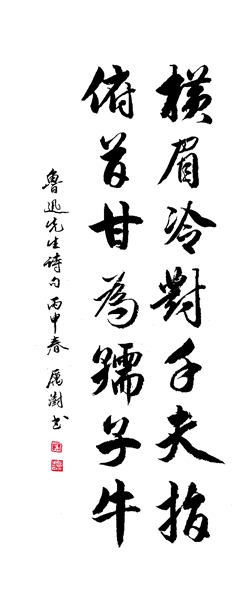 横眉冷對千夫指
俯首甘為孺子牛
魯迅先生詩句丙申春 厲澍书